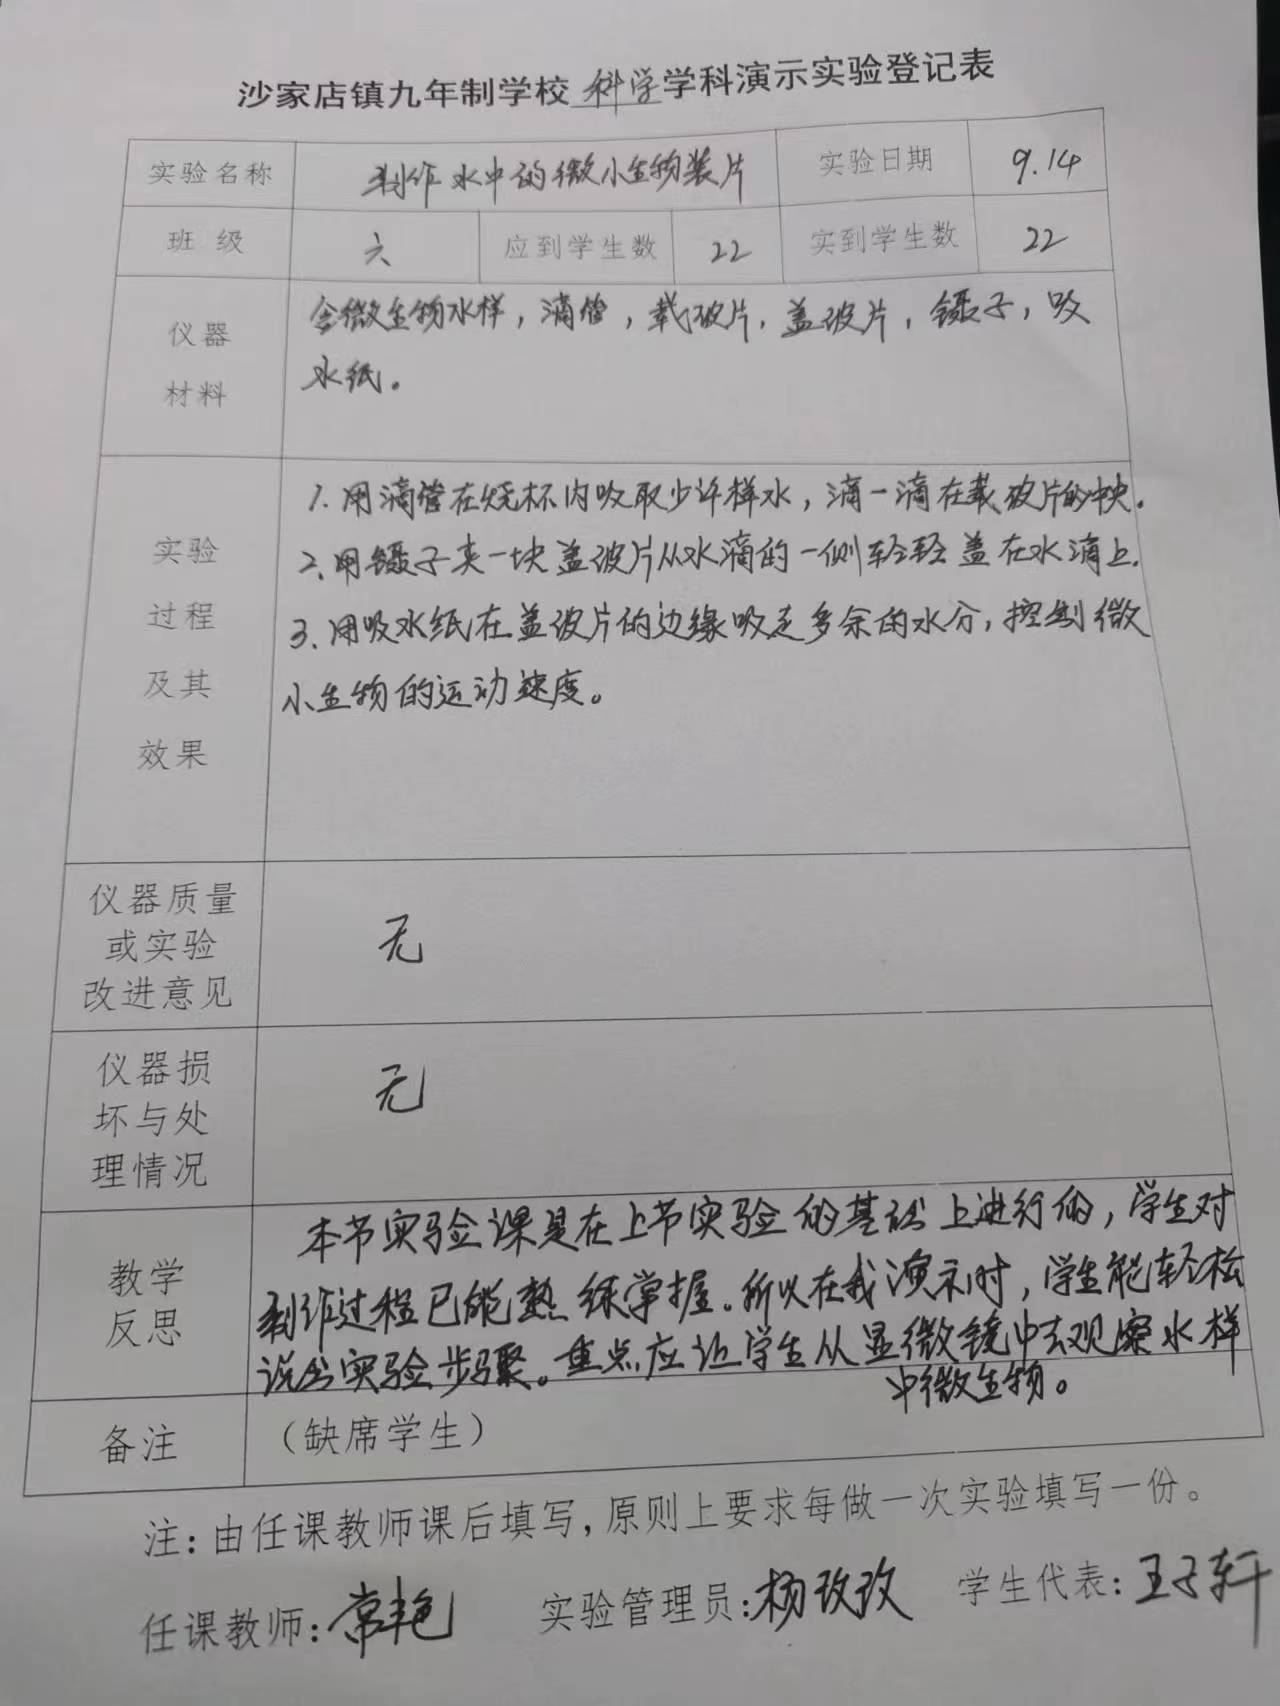 沙家店镇九年制学校 科学 学科演示实验登记表
实验名称 制作水中的微小生物装片 实验日期 9.14
班 级 六 应到学生数 22 实到学生数 22
仪器
材料
含微生物水样，滴管，载玻片，盖玻片，镊子，吸
水纸。
实验
过程
及其
效果
1.用滴管在烧杯内吸取少许样水，滴一滴在载玻片的中央.
2.用镊子夹一块盖玻片从水滴的一侧轻轻盖在水滴上.
3.用吸水纸在盖玻片的边缘吸走多余的水分，控制微
小生物的运动速度。
仪器质量
或实验
改进意见
无
仪器损
坏与处
理情况
无
教学
反思
本节实验课是在上节实验的基础上进行的，学生对
制作过程已能熟练掌握。所以在我演示时，学生能轻松
说出实验步骤。重点应让学生从显微镜中去观察水样
中微生物。
备注 （缺席学生）
注：由任课教师课后填写，原则上要求每做一次实验填写一份。
任课教师：常艳 实验管理员：杨玫玫 学生代表：王子轩